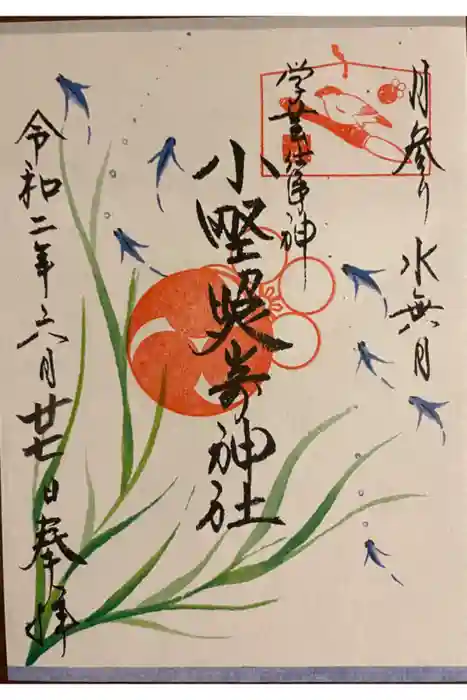 月参り 水無月
学芸仕事神
小野照嵜神社
令和二年六月廿七日奉拝